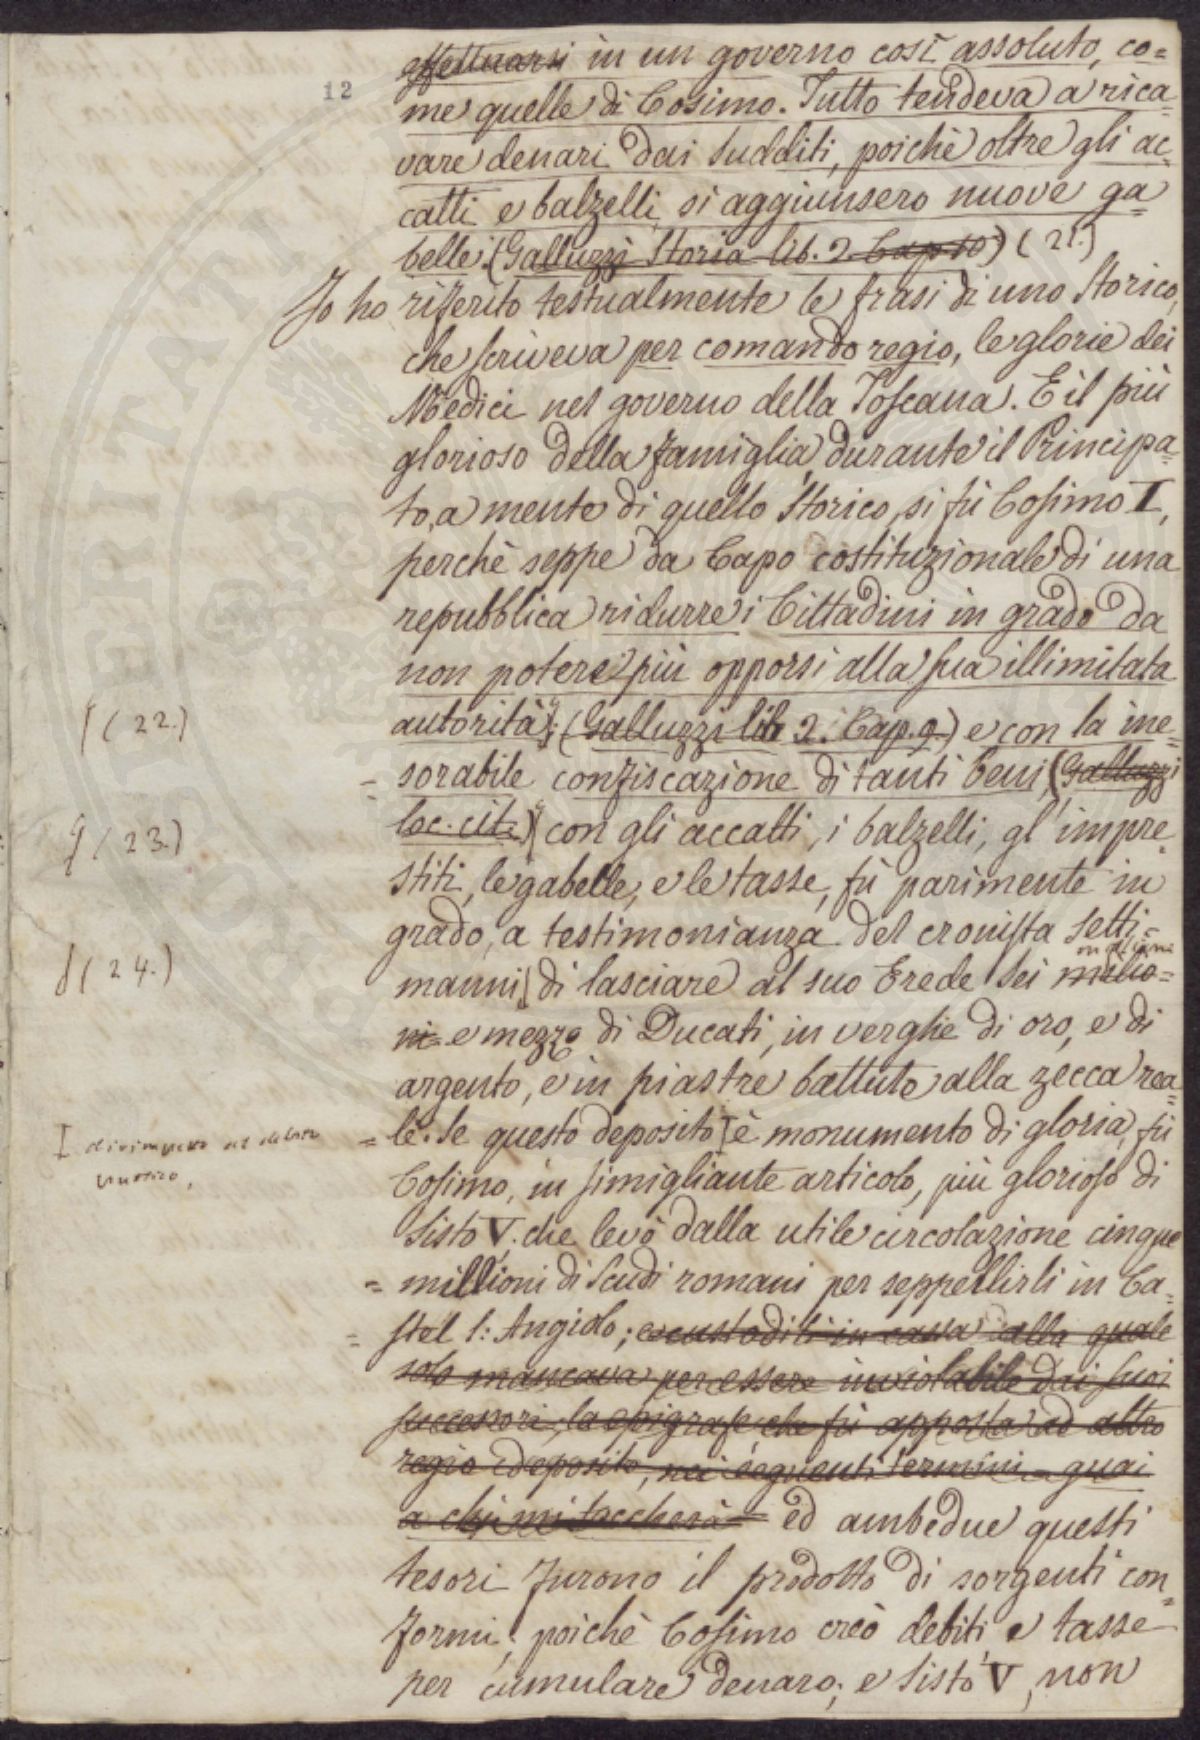 12
effettuarsi in un governo così assoluto, co=
me quello di Cosimo. Tutto tendeva a rica=
vare denari dai sudditi, poichè oltre gli ac=
catti e balzelli si aggiunsero nuove ga=
belle. (Galluzzi Storia lib. 2 Cap 10) (21.)
Io ho riferito testualmente le frasi di uno Storico,
che scriveva per comando regio, le glorie dei
Medici nel governo della Toscana. E il più
glorioso della famiglia durante il Principa=
to, a mente di quello Storico, si fù Cosimo I,
perchè seppe da Capo costituzionale di una
repubblica ridurre i Cittadini in grado da
non potersi più opporsi alla sua illimitata
(22.)
autorità; (Galluzzi lib 2. Cap. 9.) e con la ine=
= sorabile confiscazione di tanti beni, (Galluzzi
(23.)
loc. cit.) con gli accatti, i balzelli, gl'impre=
stiti, le gabelle, e le tasse, fù parimente in
grado, a testimonianza del cronista Setti=
(24.)
manni, di lasciare al suo Erede sei milio=
ni e mezzo di Ducati, in verghe di oro, e di
argento, e in piastre battute alla zecca rea=
= le. Se questo deposito I è monumento di gloria, fù
I dirimpetto al debito
Cosimo, in simigliante articolo, più glorioso di
Sisto V. che levò dalla utile circolazione cinque
= millioni di Scudi romani per seppellirli in Ca=
= stel S: Angiolo; e custoditi in cassa alla quale
solo mancava per essere inviolabile dai suoi
successori, la epigrafe che fù apposta ad altro
regio deposito, nei seguenti termini = guai
a chi mi toccherà = ed ambedue questi
tesori furono il prodotto di sorgenti con=
formi, poichè Cosimo creò debiti e tasse
per cumulare denaro; e Sisto V, non